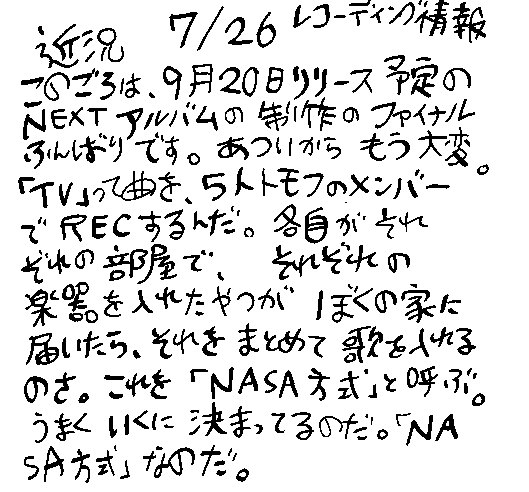 近況 7/26 レコーディング情報
このごろは、9月20日リリース予定の
NEXTアルバムの制作のファイナル
ふんばりです。あついからもう大変。
「TV」って曲を、5人トモフのメンバー
でRECするんだ。各自がそれ
ぞれの部屋で、それぞれの
楽器を入れたやつがぼくの家に
届いたら、それをまとめて歌を入れる
のさ。これを「NASA方式」と呼ぶ。
うまくいくに決まってるのだ。「NA
SA方式」なのだ。